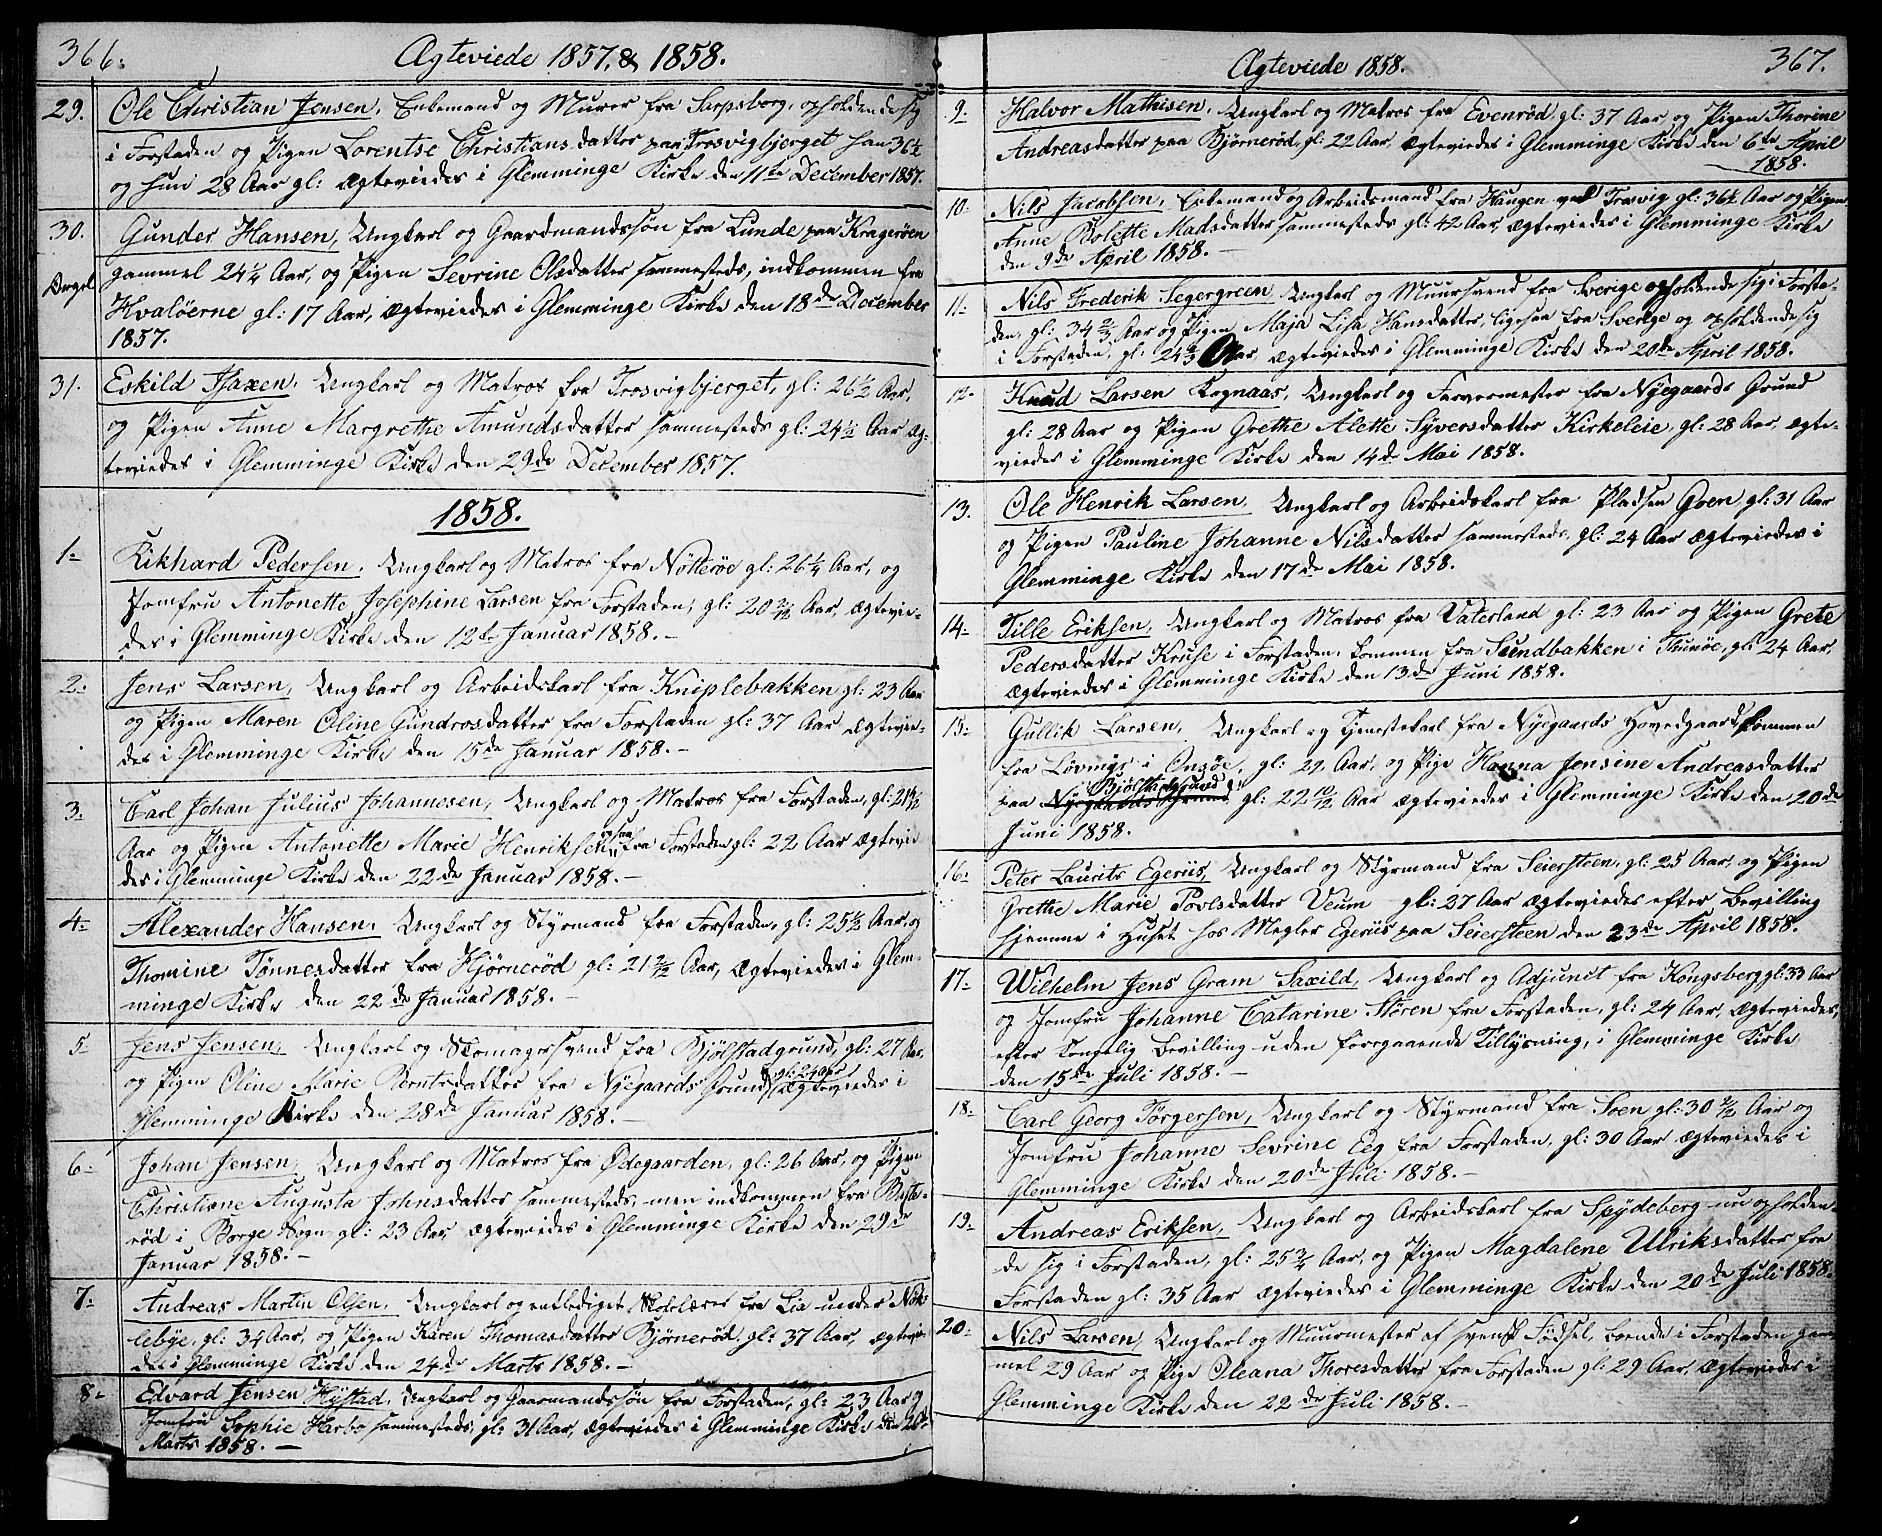 366.
Ægteviede 1857, & 1858.
29. Ole Christian Jensen, Enkemand og Murer fra Sarpsborg, opholdende sig
i Forstaden og Pigen Lorentse Christiansdatter paa Trosvigbjerget han 36½
og hun 28 Aar gl: ægteviedes i Glemminge Kirke den 11te December 1857.
30. Gunder Hansen, Ungkarl og Gaardmandssøn fra Lunde paa Kragerøen
gammel 24¼ Aar, og Pigen Sevrine Olsdatter sammesteds, indkommen fra
Hvaløerne gl: 17 Aar, ægteviedes i Glemminge Kirke den 18de December
1857.
31. Eskild Isaxen, Ungkarl og Matros fra Trosvigbjerget, gl: 26½ Aar,
og Pigen Anne Margrethe Amundsdatter sammesteds gl: 24½ Aar æg-
teviedes i Glemminge Kirke den 29de December 1857.
1858.
1. Rikhard Pedersen, Ungkarl og Matros fra Nötteröe gl: 26¼ Aar, og
Jomfru Antonette Josephine Larsen fra Forstaden, gl: 20 2/12 Aar, ægtevie-
des i Glemminge Kirke den 12te Januar 1858.-
2. Jens Larsen, Ungkarl og Arbeidskarl fra Kniplebakken gl: 23 Aar
og Pigen Maren Oline Gundrosdatter fra Forstaden gl: 37 Aar ægtevie-
des i Glemminge Kirke den 15de Januar 1858.-
3. Carl Johan Julius Johannesen, Ungkarl og Matros fra Forstaden, gl: 21
Aar og Pigen Antonette Marie Henriksen ogsaa fra Forstaden gl: 22 Aar ægtevie
des i Glemminge Kirke den 22de Januar 1858.-
4. Alexander Hansen, Ungkarl og Styrmand fra Forstaden, gl: 25½ Aar, og
Thomine Tønnesdatter fra Hjørnerød gl: 21 2/12 Aar, ægteviedes i Glem-
minge Kirke den 22de Januar 1858.-
5. Jens Jensen, Ungkarl og Skomagersvend fra Bjølstadgrund, gl: 27 Aar,
og Pigen Oline Marie Berntsdatter fra Nyegaards Grund, gl: 24 Aar ægteviedes i
Glemminge Kirke den 28de Januar 1858.-
6. Johan Jensen, Ungkarl og Matros fra Ødegaarden, gl: 26 Aar, og Pigen
Christiane Augusta Johnsdatter sammesteds, men indkommen fra
rød i Borge Sogn gl: 23 Aar ægteviedes i Glemminge Kirke den 29de
Januar 1858.-
7. Andreas Martin Olsen, Ungkarl og entlediget Skolelærer fra Lia under Nok-
lebye, gl: 34 Aar, og Pigen Karen Thomasdatter Bjørnerød, gl: 37 Aar, ægtevie-
des i Glemminge Kirke den 24de Marts 1858.-
8. Edvard Jensen Hystad, Ungkarl og Gaarmandssøn fra Forstaden, gl: 23 Aar og
Jomfru Sophie Harbo sammesteds, gl: 31 Aar, ægteviedes i Glemminge Kirke den
Marts 1858.-
Ægteviede 1858.
367.
9. Halvor Mathisen, Ungkarl og Matros fra Evenrød gl: 37 Aar og Pigen Thorine
Andreasdatter paa Bjørnerød, gl: 22 Aar, ægteviedes i Glemminge Kirke den 6te April
1858.
10. Nils Jacobsen, Enkemand og Arbeidsmand fra Haugen ved Trosvig gl: 36½ Aar og Pigen
Anne Bolette Madsdatter sammesteds gl: 42 Aar, ægteviedes i Glemminge Kirke
den 9de April 1858.-
11. Nils Frederik Segergreen, Ungkarl og Muursvend fra Sverige opholdende sig i Forsta-
den, gl: 34 2/3 Aar og Pigen Maja Lisa Hansdatter, ligesaa fra Sverige og opholdende sig
i Forstaden, gl: 24 Aar, ægteviedes i Glemminge Kirke den 20de April 1858.
12. Knud Larsen Rognaas, Ungkarl og Farvermester fra Nyegaards Grund
gl: 28 Aar og Pigen Grethe Alette Syversdatter Kirkeleie, gl: 28 Aar, ægte-
viedes i Glemminge Kirke den 14de Mai 1858.
13. Ole Henrik Larsen, Ungkarl og Arbeidskarl fra Pladsen Goen gl: 31 Aar
og Pigen Pauline Johanne Nilsdatter sammesteds, gl: 24 Aar ægteviedes i
Glemminge Kirke den 17de Mai 1858.
14. Tille Eriksen, Ungkarl og Matros fra Vaterland gl: 23 Aar og Pigen Grete
Pedersdatter Kruse i Forstaden, kommen fra Sundbakken i Thunøe, gl: 24 Aar,
ægteviedes i Glemminge Kirke den 13de Juni 1858.
15. Gullik Larsen, Ungkarl og Tjenestekarl fra Nyegaards Hovedgaard, kommen
fra Løvings i Onsøe, gl: 29 Aar, og Pige Hanna Jensine Andreasdatter
paa Bjølstadgrund gl: 22 10/12 Aar ægteviedes i Glemminge Kirke den 20de
Juni 1858.
16. Peter Laurits Egeriis, Ungkarl og Styrmand fra Seiersteen, gl: 25 Aar, og Pigen
Grethe Marie Povlsdatter Veum gl: 27 Aar ægteviedes efter Bevilling
hjemme i Huset hos Megler Egeriis paa Seiersteen den 23de April 1858.
17. Wilhelm Jens Gram Saxild, Ungkarl og Adjunct fra Kongsberg gl: 33 Aar
og Jomfru Johanne Catarine Støren fra Forstaden, gl: 24 Aar, ægteviedes,
efter Kongelig Bevilling uden foregaaende Tillysning, i Glemminge Kirke
den 15de Juli 1858.-
18. Carl Georg Torgersen, Ungkarl og Styrmand fra Soen gl: 30 2/12 Aar og
Jomfru Johanne Sevrine Eeg fra Forstaden, gl: 30 Aar ægteviedes i
Glemminge Kirke den 20de Juli 1858.-
19. Andreas Eriksen, Ungkarl og Arbeidskarl fra Spydeberg nu opholden-
de sig i Forstaden, gl: 25¾ Aar, og Pigen Magdalene Ulriksdatter fra
Forstaden gl: 35 Aar ægteviedes i Glemminge Kirke den 20de Juli 1858.
20. Nils Larsen, Ungkarl og Muurmester af svensk Fødsel, boende i Forstaden gam-
mel 29 Aar og Pige Oleana Thoresdatter fra Forstaden gl: 29 Aar, ægteviedes i
Glemminge Kirke den 22de Juli 1858.-